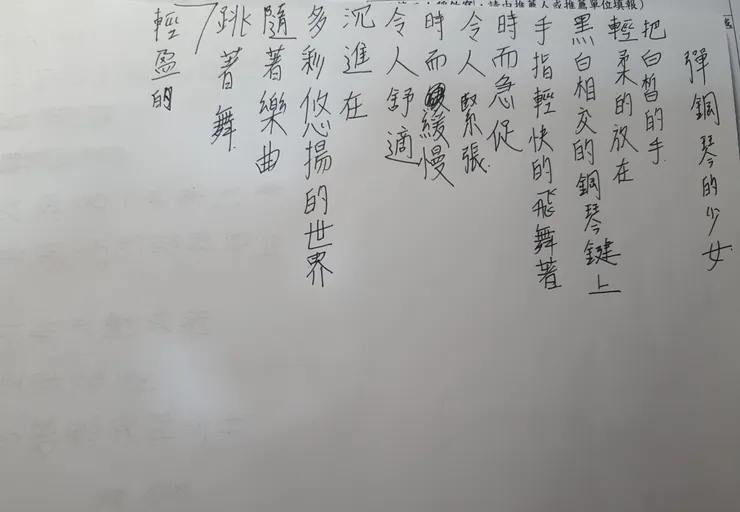 請由推薦人或推薦單位填報）
彈鋼琴的少女
把白皙的手
輕柔的放在
黑白相交的鋼琴鍵上
手指輕快的飛舞著
時而急促
令人緊張
時而緩慢
令人舒適
沉進在
多彩悠揚的世界
隨著樂曲
跳著舞
輕盈的